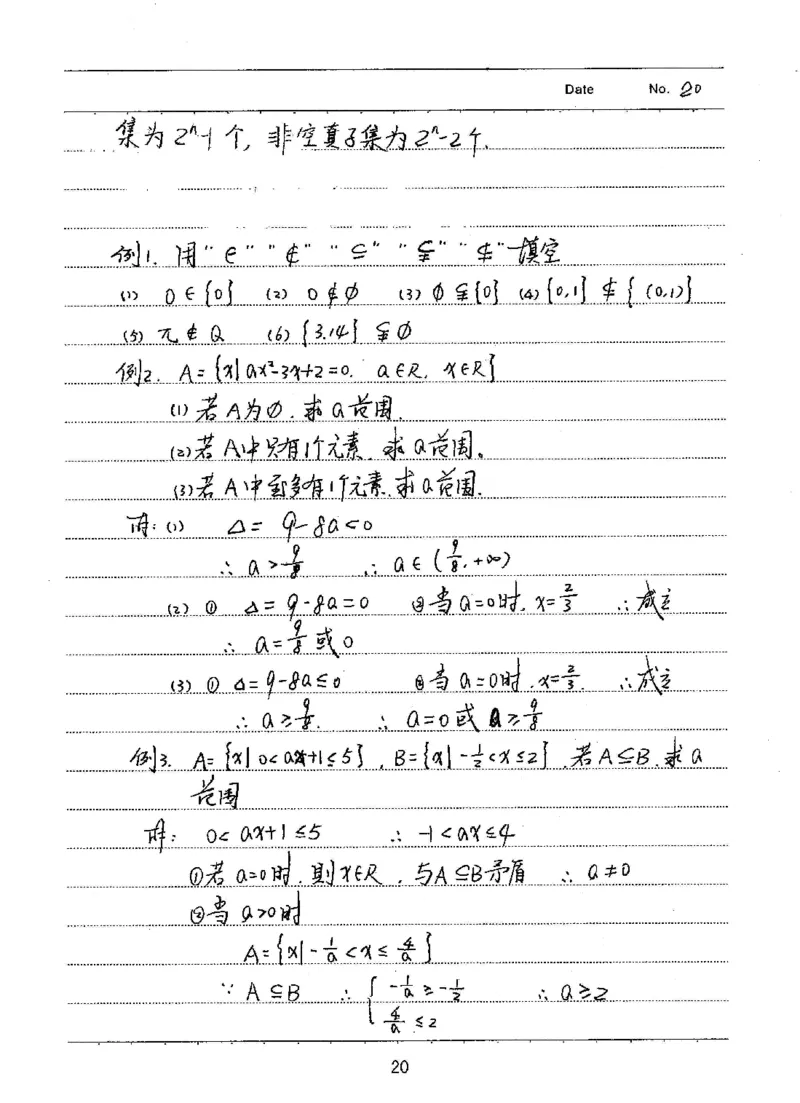 Date No. 20
集为 2ⁿ-1 个, 非空真子集为 2ⁿ-2 个.
例1. 用 "∈" "∉" "⊆" "⫋" "⊈" 填空
(1) 0∈{0} (2) 0∉∅ (3) ∅⫋{0} (4) {0,1}⊈{(0,1)}
(5) π∉Q (6) {3.14}⫋∅
例2. A={x|ax²-3x+2=0. a∈R, x∈R}
(1) 若A为∅. 求a范围.
(2) 若A中只有1个元素. 求a范围。
(3) 若A中至多有1个元素. 求a范围.
解: (1) Δ= 9-8a<0
∴ a>9/8 ∴ a∈(9/8, +∞)
(2) ① Δ=9-8a=0 ②当a=0时, x=2/3 ∴成立
∴ a=9/8或0
(3) ① Δ=9-8a≤0 ②当a=0时. x=2/3. ∴成立
∴ a≥9/8. ∴ a=0或a≥9/8
例3. A={x|0<ax+1≤5}, B={x|-1/2<x≤2}. 若A⊆B. 求a
范围
解: 0<ax+1≤5 ∴ -1<ax≤4
①若a=0时. 则x∈R, 与A⊆B矛盾 ∴ a≠0
②当a>0时
A={x|-1/a<x≤4/a}
∵ A⊆B ∴ { -1/a≥-1/2 ∴ a≥2
4/a≤2
20